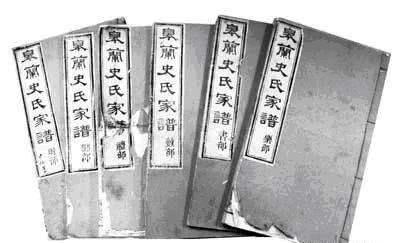 皋蘭史氏家譜
射部
皋蘭史氏家譜
御部
皋蘭史氏家譜
禮部
皋蘭史氏家譜
數部
皋蘭史氏家譜
書部
皋蘭史氏家譜
樂部